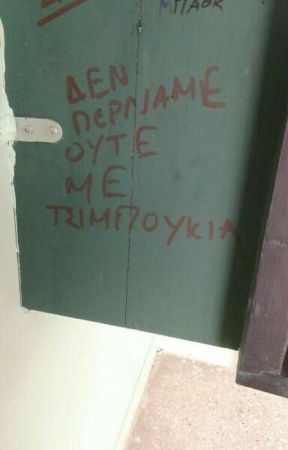 ΜΠΑΟΚ
ΔΕΝ
ΠΕΡΝΑΜΕ
ΟΥΤΕ
ΜΕ
ΤΣΙΜΠΟΥΚΙΑ